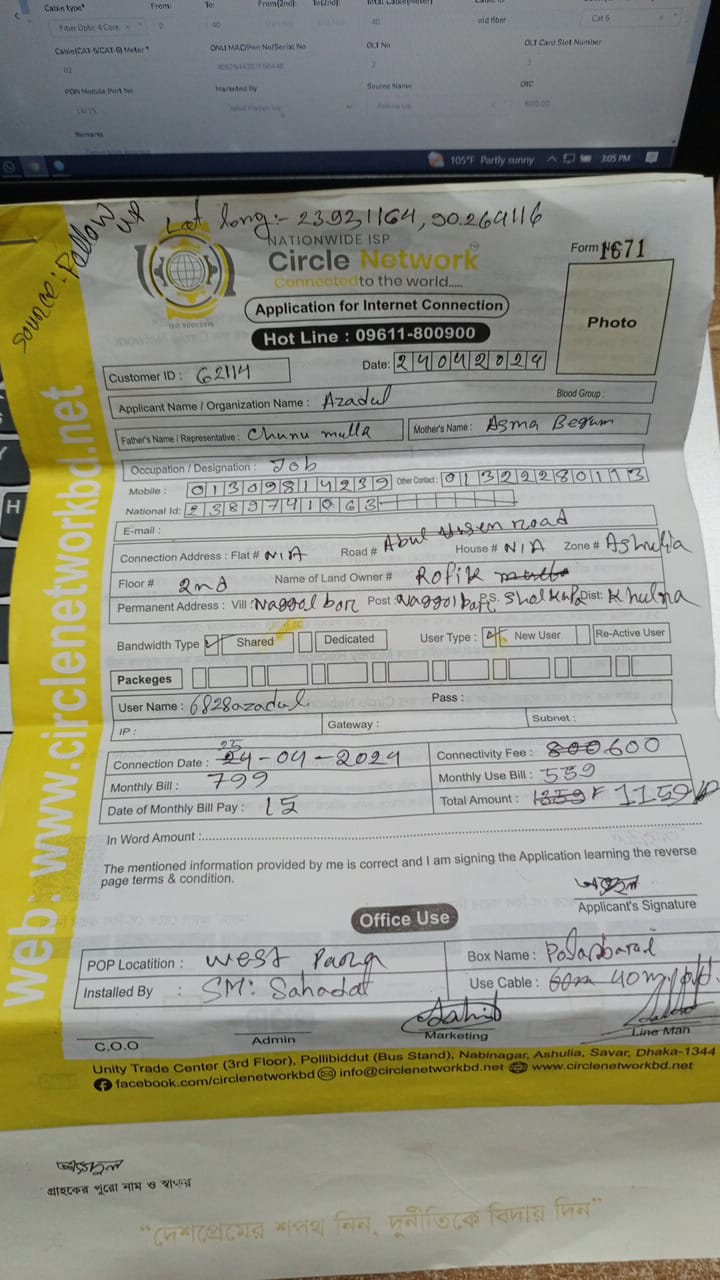 Cable type* From: To: From(2nd): To(2nd): Total Cable(Meter)
Fiber Optic 4 Core 0 40 40 old fiber Cat 6
Cable(CAT-5/CAT-6) Meter * ONU MAC/Pon No/Serial No OLT No OLT Card Slot Number
02 2 3
PON Module Port No Marketed By Source Name OTC
Follow Up 600.00
Remarks
105°F Partly sunny 3:05 PM
Source: Follow up
Lat long:- 23.931164, 90.264116
NATIONWIDE ISP
Circle Network
Connected to the world.....
ISO 9001:2015
Form 1671
Application for Internet Connection
Photo
Hot Line : 09611-800900
Date: 24042024
Customer ID : 62114
Applicant Name / Organization Name : Azadul Blood Group :
Father's Name / Representative : Chunu mulla Mother's Name : Asma Begum
Occupation / Designation : Job
Mobile : 01309814239 Other Contact : 01322280113
National Id: 2389741063
E-mail :
Connection Address : Flat # N/A Road # Abul Hosen road House # N/A Zone # Ashulia
Floor # 2nd Name of Land Owner # Rofik
Permanent Address : Vill : Naggol bari Post : Naggol bari P.S. Shalkupa Dist: Khulna
Bandwidth Type Shared Dedicated User Type : New User Re-Active User
Packeges
User Name : 6828azadul Pass :
IP : Gateway : Subnet :
Connection Date : 25 24-04-2024 Connectivity Fee : 800 600
Monthly Bill : 799 Monthly Use Bill : 559
Date of Monthly Bill Pay : 15 Total Amount : 1359 1159
In Word Amount :
The mentioned information provided by me is correct and I am signing the Application learning the reverse
page terms & condition.
Applicant's Signature
Office Use
POP Locatition : West Parga Box Name : Palasbari
Installed By : SM: Sahadat Use Cable : 60m 40m
Sahib
C.O.O Admin Marketing Line Man
Unity Trade Center (3rd Floor), Pollibiddut (Bus Stand), Nabinagar, Ashulia, Savar, Dhaka-1344
facebook.com/circlenetworkbd info@circlenetworkbd.net www.circlenetworkbd.net
web: www.circlenetworkbd.net
গ্রাহকের পুরো নাম ও স্বাক্ষর
“দেশপ্রেমের শপথ নিন, দুর্নীতিকে বিদায় দিন”